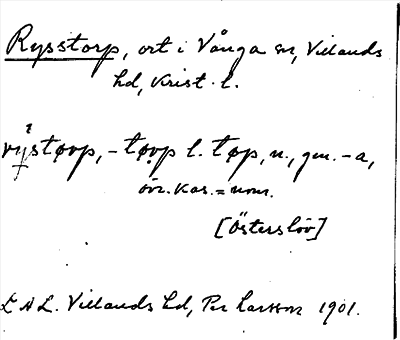 Rysstorp, ort i Vånga sn, Villands
hd, Krist. l.
rystørp, -tørp l. tøp, n., gen. -a,
övr. kas. = nom.
[Österslöv]
LAL. Villands hd, Per Larsson 1901.